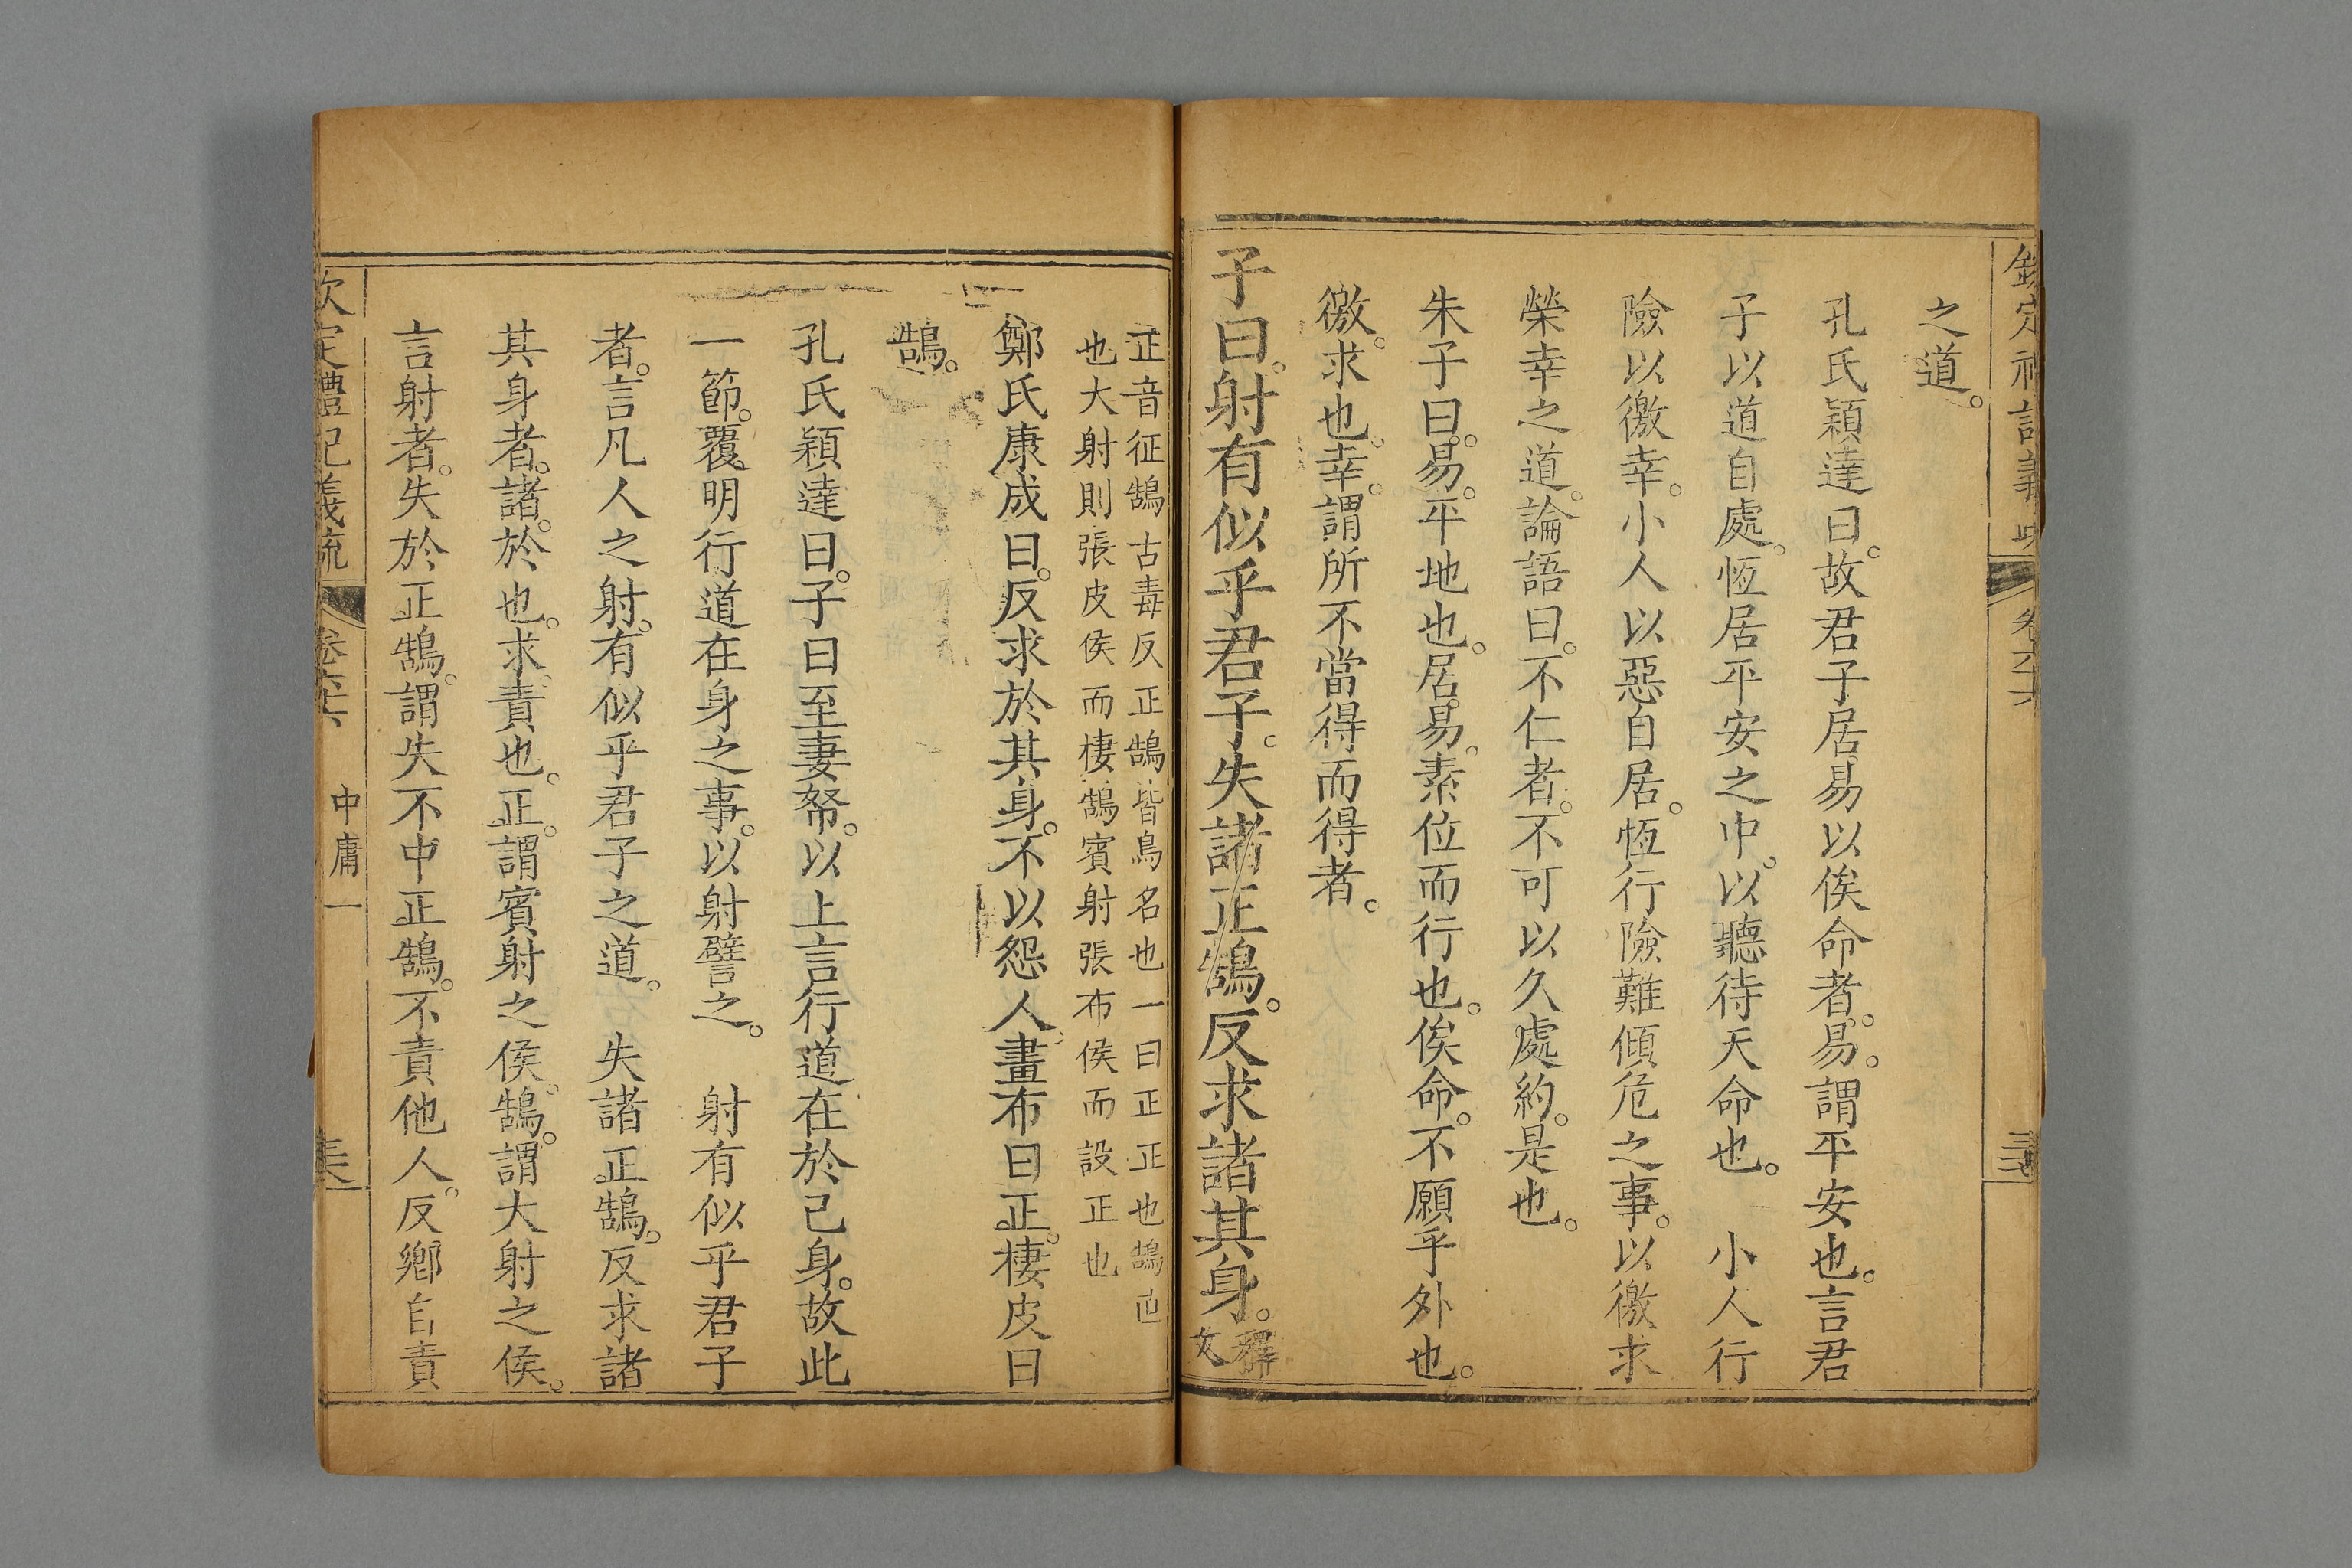 之道。
孔氏穎達曰。故君子居易以俟命者。易。謂平安也。言君
子以道自處。恆居平安之中。以聽待天命也。 小人行
險以徼幸。小人以惡自居。恆行險難傾危之事。以徼求
榮幸之道。論語曰。不仁者。不可以久處約。是也。
朱子曰。易。平地也。居易。素位而行也。俟命。不願乎外也。
徼。求也。幸。謂所不當得而得者。
子曰。射有似乎君子。失諸正鵠。反求諸其身。釋文
正音征鵠古毒反正鵠皆鳥名也一曰正正也鵠直
也大射則張皮侯而棲鵠賓射張布侯而設正也
鄭氏康成曰。反求於其身。不以怨人。畫布曰正。棲皮曰
鵠。
孔氏穎達曰。子曰至妻帑。以上言行道在於己身。故此
一節。覆明行道在身之事。以射譬之。 射有似乎君子
者。言凡人之射。有似乎君子之道。 失諸正鵠。反求諸
其身者。諸。於也。求。責也。正。謂賓射之侯。鵠。謂大射之侯。
言射者。失於正鵠。謂失不中正鵠。不責他人。反鄉自責
欽定禮記義疏 卷六十六 中庸一